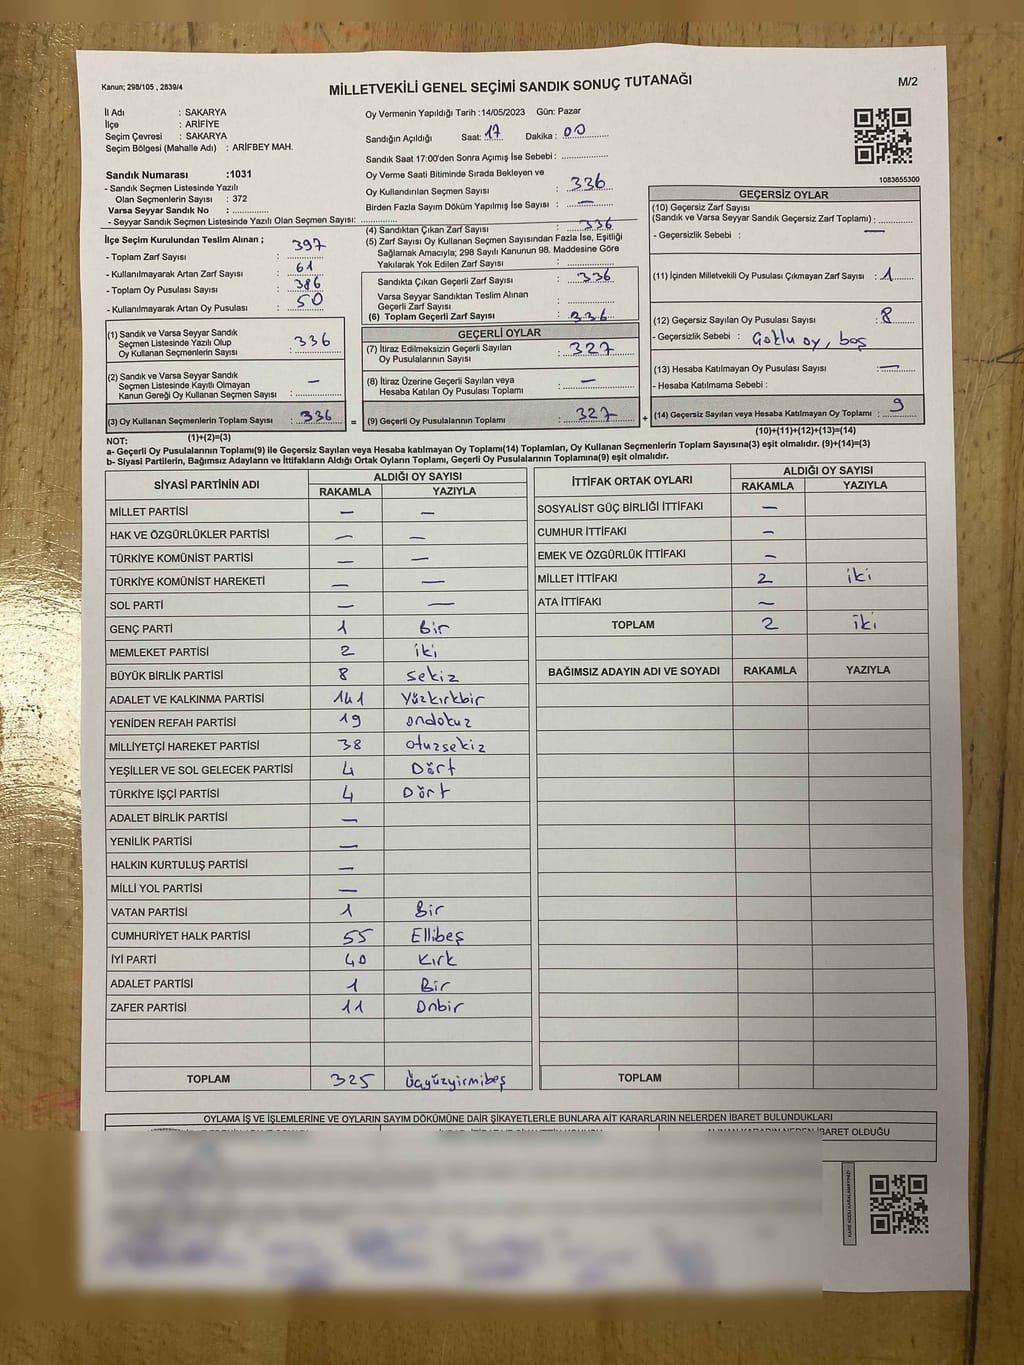 Kanun; 298/105 , 2839/4
MİLLETVEKİLİ GENEL SEÇİMİ SANDIK SONUÇ TUTANAĞI
M/2
İl Adı : SAKARYA
İlçe : ARİFİYE
Seçim Çevresi : SAKARYA
Seçim Bölgesi (Mahalle Adı) : ARİFBEY MAH.
Oy Vermenin Yapıldığı Tarih :14/05/2023 Gün: Pazar
Sandığın Açıldığı Saat: 17 Dakika : 00
Sandık Saat 17:00'den Sonra Açımış İse Sebebi : ..............
Oy Verme Saati Bitiminde Sırada Bekleyen ve
Oy Kullandırılan Seçmen Sayısı : 336
Birden Fazla Sayım Döküm Yapılmış İse Sayısı : —
1083655300
Sandık Numarası :1031
- Sandık Seçmen Listesinde Yazılı
Olan Seçmenlerin Sayısı : 372
Varsa Seyyar Sandık No : ..............
- Seyyar Sandık Seçmen Listesinde Yazılı Olan Seçmen Sayısı: ..............
İlçe Seçim Kurulundan Teslim Alınan ;
- Toplam Zarf Sayısı : 397
- Kullanılmayarak Artan Zarf Sayısı : 61
- Toplam Oy Pusulası Sayısı : 386
- Kullanılmayarak Artan Oy Pusulası : 50
(1) Sandık ve Varsa Seyyar Sandık
Seçmen Listesinde Yazılı Olup
Oy Kullanan Seçmenlerin Sayısı : 336
(2) Sandık ve Varsa Seyyar Sandık
Seçmen Listesinde Kayıtlı Olmayan
Kanun Gereği Oy Kullanan Seçmen Sayısı : —
(3) Oy Kullanan Seçmenlerin Toplam Sayısı : 336
(1)+(2)=(3)
(4) Sandıktan Çıkan Zarf Sayısı : 336
(5) Zarf Sayısı Oy Kullanan Seçmen Sayısından Fazla İse, Eşitliği
Sağlamak Amacıyla; 298 Sayılı Kanunun 98. Maddesine Göre
Yakılarak Yok Edilen Zarf Sayısı : ..............
Sandıkta Çıkan Geçerli Zarf Sayısı : 336
Varsa Seyyar Sandıktan Teslim Alınan
Geçerli Zarf Sayısı : ..............
(6) Toplam Geçerli Zarf Sayısı : 336
GEÇERLİ OYLAR
(7) İtiraz Edilmeksizin Geçerli Sayılan
Oy Pusulalarının Sayısı : 327
(8) İtiraz Üzerine Geçerli Sayılan veya
Hesaba Katılan Oy Pusulası Toplamı : —
= (9) Geçerli Oy Pusulalarının Toplamı : 327 +
GEÇERSİZ OYLAR
(10) Geçersiz Zarf Sayısı
(Sandık ve Varsa Seyyar Sandık Geçersiz Zarf Toplamı) : ..............
- Geçersizlik Sebebi : —
(11) İçinden Milletvekili Oy Pusulası Çıkmayan Zarf Sayısı : 1
(12) Geçersiz Sayılan Oy Pusulası Sayısı : 8
- Geçersizlik Sebebi : Çoklu oy, boş
(13) Hesaba Katılmayan Oy Pusulası Sayısı : —
- Hesaba Katılmama Sebebi :
(14) Geçersiz Sayılan veya Hesaba Katılmayan Oy Toplamı : 9
(10)+(11)+(12)+(13)=(14)
NOT:
a- Geçerli Oy Pusulalarının Toplamı(9) ile Geçersiz Sayılan veya Hesaba katılmayan Oy Toplamı(14) Toplamları, Oy Kullanan Seçmenlerin Toplam Sayısına(3) eşit olmalıdır. (9)+(14)=(3)
b- Siyasi Partilerin, Bağımsız Adayların ve İttifakların Aldığı Ortak Oyların Toplamı, Geçerli Oy Pusulalarının Toplamına(9) eşit olmalıdır.
SİYASİ PARTİNİN ADI ALDIĞI OY SAYISI
RAKAMLA YAZIYLA
MİLLET PARTİSİ — —
HAK VE ÖZGÜRLÜKLER PARTİSİ — —
TÜRKİYE KOMÜNİST PARTİSİ — —
TÜRKİYE KOMÜNİST HAREKETİ — —
SOL PARTİ — —
GENÇ PARTİ 1 Bir
MEMLEKET PARTİSİ 2 iki
BÜYÜK BİRLİK PARTİSİ 8 sekiz
ADALET VE KALKINMA PARTİSİ 141 Yüzkırkbir
YENİDEN REFAH PARTİSİ 19 ondokuz
MİLLİYETÇİ HAREKET PARTİSİ 38 otuzsekiz
YEŞİLLER VE SOL GELECEK PARTİSİ 4 Dört
TÜRKİYE İŞÇİ PARTİSİ 4 Dört
ADALET BİRLİK PARTİSİ —
YENİLİK PARTİSİ —
HALKIN KURTULUŞ PARTİSİ —
MİLLİ YOL PARTİSİ —
VATAN PARTİSİ 1 Bir
CUMHURİYET HALK PARTİSİ 55 Ellibeş
İYİ PARTİ 40 Kırk
ADALET PARTİSİ 1 Bir
ZAFER PARTİSİ 11 Onbir
TOPLAM 325 Üçyüzyirmibeş
İTTİFAK ORTAK OYLARI ALDIĞI OY SAYISI
RAKAMLA YAZIYLA
SOSYALİST GÜÇ BİRLİĞİ İTTİFAKI —
CUMHUR İTTİFAKI —
EMEK VE ÖZGÜRLÜK İTTİFAKI —
MİLLET İTTİFAKI 2 iki
ATA İTTİFAKI —
TOPLAM 2 iki
BAĞIMSIZ ADAYIN ADI VE SOYADI RAKAMLA YAZIYLA
TOPLAM
OYLAMA İŞ VE İŞLEMLERİNE VE OYLARIN SAYIM DÖKÜMÜNE DAİR ŞİKAYETLERLE BUNLARA AİT KARARLARIN NELERDEN İBARET BULUNDUKLARI
ALINAN KARARIN NEDEN İBARET OLDUĞU